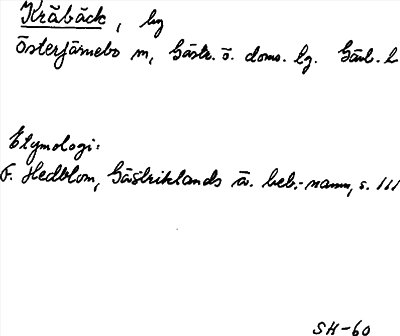 Kråbäck, by
Österfärnebo sn, Gästr. ö. doms. hg. Gävl. l
Etymologi:
F. Hedblom, Gästriklands ä. beb.-namn, s. 111
SH-60